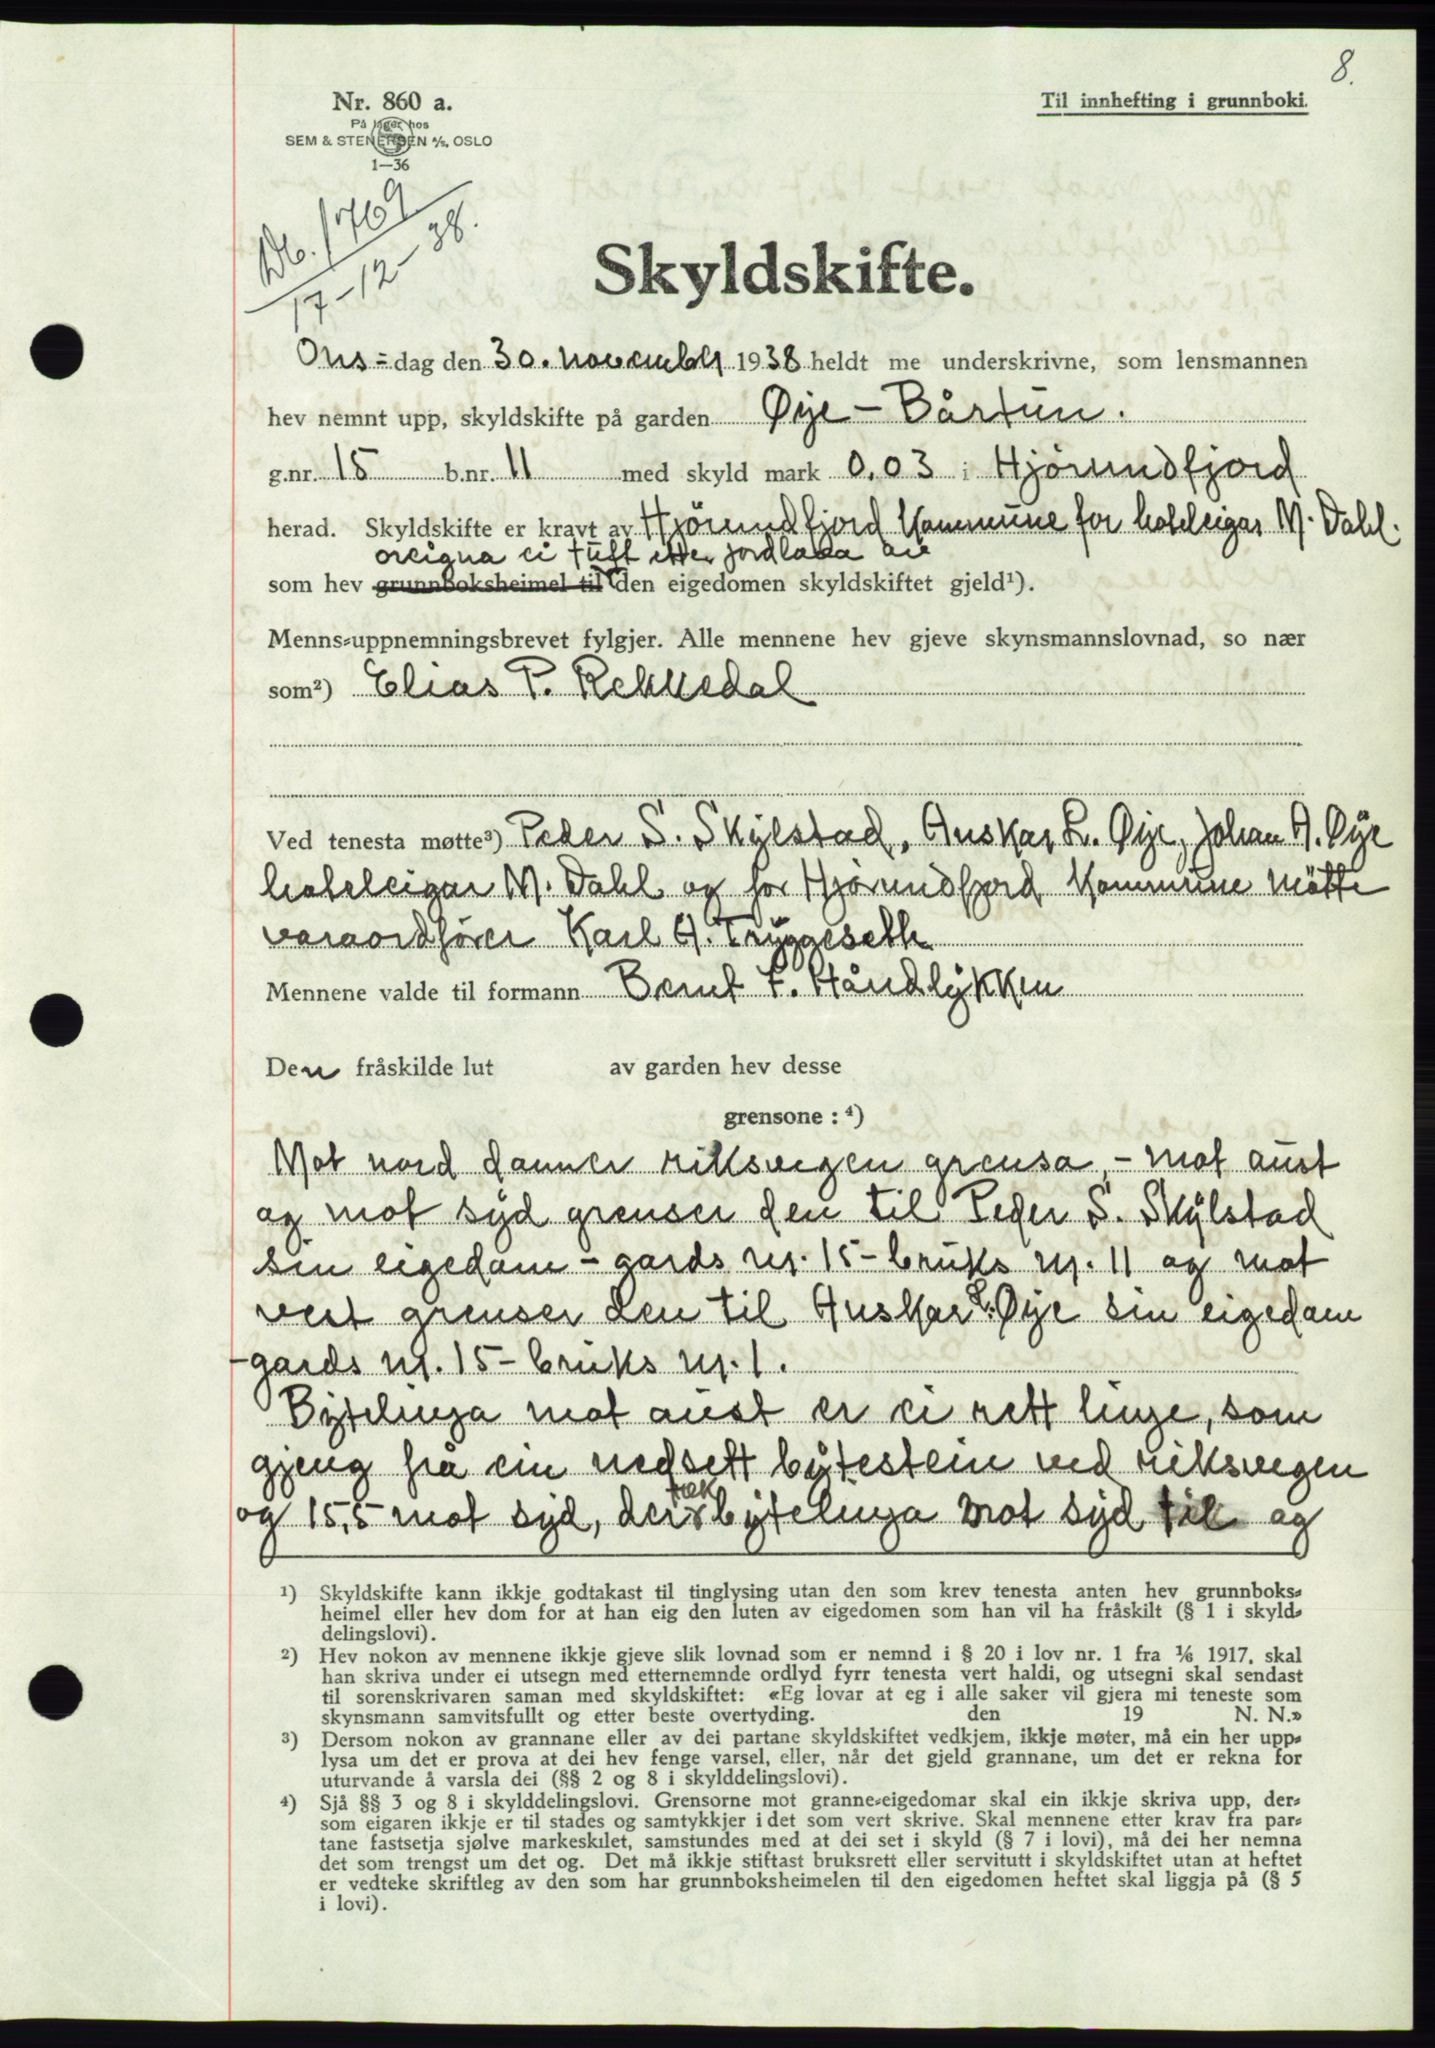 8.
Nr. 860 a.
Til innhefting i grunnboki.
På lager hos
SEM & STENERSEN A/S, OSLO
1—36
Db. 1769
17-12-38.
Skyldskifte.
Ons=dag den 30. november 1938 heldt me underskrivne, som lensmannen
hev nemnt upp, skyldskifte på garden Øye - Bårtun.
g.nr. 15 b.nr. 11 med skyld mark 0.03 i Hjørundfjord
herad. Skyldskifte er kravt av Hjørundfjord kommune for hoteleigar M. Dahl.
oreigna ei tuft etter jordlova av
som hev grunnboksheimel til den eigedomen skyldskiftet gjeld¹).
Menns=uppnemningsbrevet fylgjer. Alle mennene hev gjeve skynsmannslovnad, so nær
som²) Elias P. Rekkedal
Ved tenesta møtte³) Peder S. Skylstad, Auskar L. Øye, Johan A. Øye
hoteleigar M. Dahl og for Hjørundfjord kommune møtte
varaordfører Karl A. Tryggeseth
Mennene valde til formann Bernt F. Håndlykken
Den fråskilde lut av garden hev desse
grensone : ⁴)
Mot nord danner riksvegen grensa, - mot aust
og mot syd grenser den til Peder S. Skylstad
sin eigedom - gards nr. 15 - bruks nr. 11 og mot
vest grenser den til Auskar L. Øye sin eigedom
- gards nr. 15 - bruks nr. 1.
Bytelinja mot aust er ei rett linje, som
gjeng frå ein nedsett bytestein ved riksvegen
tek
og 15,5 mot syd, der bytelinja mot syd til og
¹) Skyldskifte kann ikkje godtakast til tinglysing utan den som krev tenesta anten hev grunnboks=
heimel eller hev dom for at han eig den luten av eigedomen som han vil ha fråskilt (§ 1 i skyld=
delingslovi).
²) Hev nokon av mennene ikkje gjeve slik lovnad som er nemnd i § 20 i lov nr. 1 fra 1/6 1917, skal
han skriva under ei utsegn med etternemnde ordlyd fyrr tenesta vert haldi, og utsegni skal sendast
til sorenskrivaren saman med skyldskiftet: «Eg lovar at eg i alle saker vil gjera mi teneste som
skynsmann samvitsfullt og etter beste overtyding. den 19 N. N.»
³) Dersom nokon av grannane eller av dei partane skyldskiftet vedkjem, ikkje møter, må ein her upp=
lysa um det er prova at dei hev fenge varsel, eller, når det gjeld grannane, um det er rekna for
uturvande å varsla dei (§§ 2 og 8 i skylddelingslovi).
⁴) Sjå §§ 3 og 8 i skylddelingslovi. Grensorne mot granne=eigedomar skal ein ikkje skriva upp, der=
som eigaren ikkje er til stades og samtykkjer i det som vert skrive. Skal mennene etter krav fra par=
tane fastsetja sjølve markeskilet, samstundes med at dei set i skyld (§ 7 i lovi), må dei her nemna
det som trengst um det og. Det må ikkje stiftast bruksrett eller servitutt i skyldskiftet utan at heftet
er vedteke skriftleg av den som har grunnboksheimelen til den eigedomen heftet skal liggja på (§ 5
i lovi).